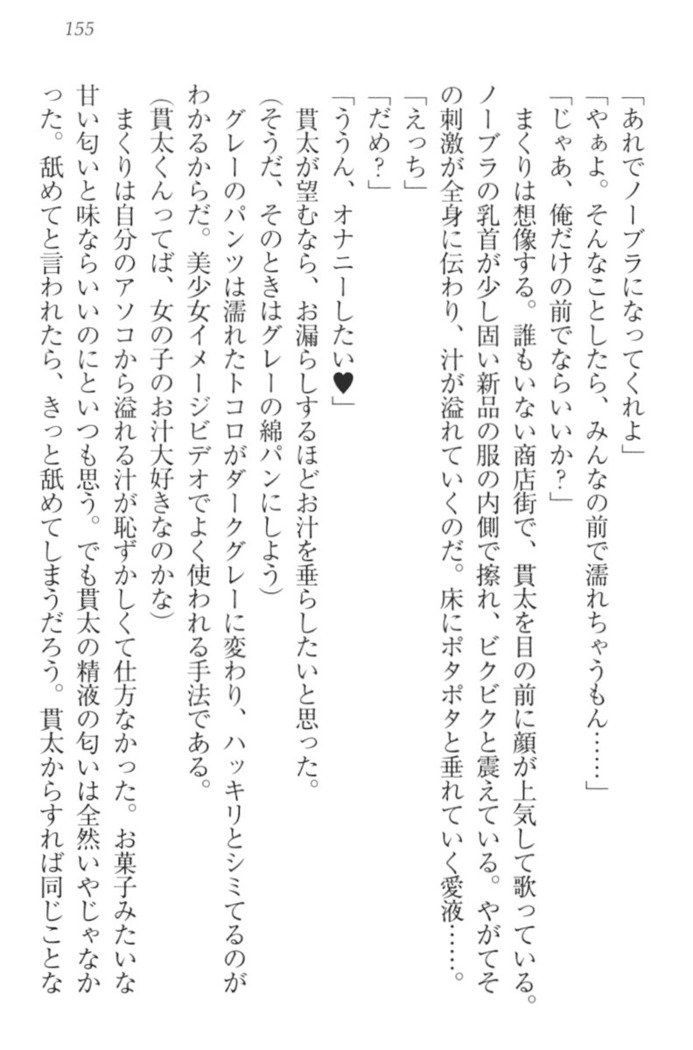 155
「あれでノーブラになってくれよ」
「やぁよ。そんなことしたら、みんなの前で濡れちゃうもん……」
「じゃあ、俺だけの前でならいいか？」
　まくりは想像する。誰もいない商店街で、貫太を目の前に顔が上気して歌っている。
ノーブラの乳首が少し固い新品の服の内側で擦れ、ビクビクと震えている。やがてそ
の刺激が全身に伝わり、汁が溢れていくのだ。床にポタポタと垂れていく愛液……。
「えっち」
「だめ？」
「ううん、オナニーしたい♥」
　貫太が望むなら、お漏らしするほどお汁を垂らしたいと思った。
（そうだ、そのときはグレーの綿パンにしよう）
　グレーのパンツは濡れたトコロがダークグレーに変わり、ハッキリとシミてるのが
わかるからだ。美少女イメージビデオでよく使われる手法である。
（貫太くんってば、女の子のお汁大好きなのかな）
　まくりは自分のアソコから溢れる汁が恥ずかしくて仕方なかった。お菓子みたいな
甘い匂いと味ならいいのにといつも思う。でも貫太の精液の匂いは全然いやじゃなか
った。舐めてと言われたら、きっと舐めてしまうだろう。貫太からすれば同じことな